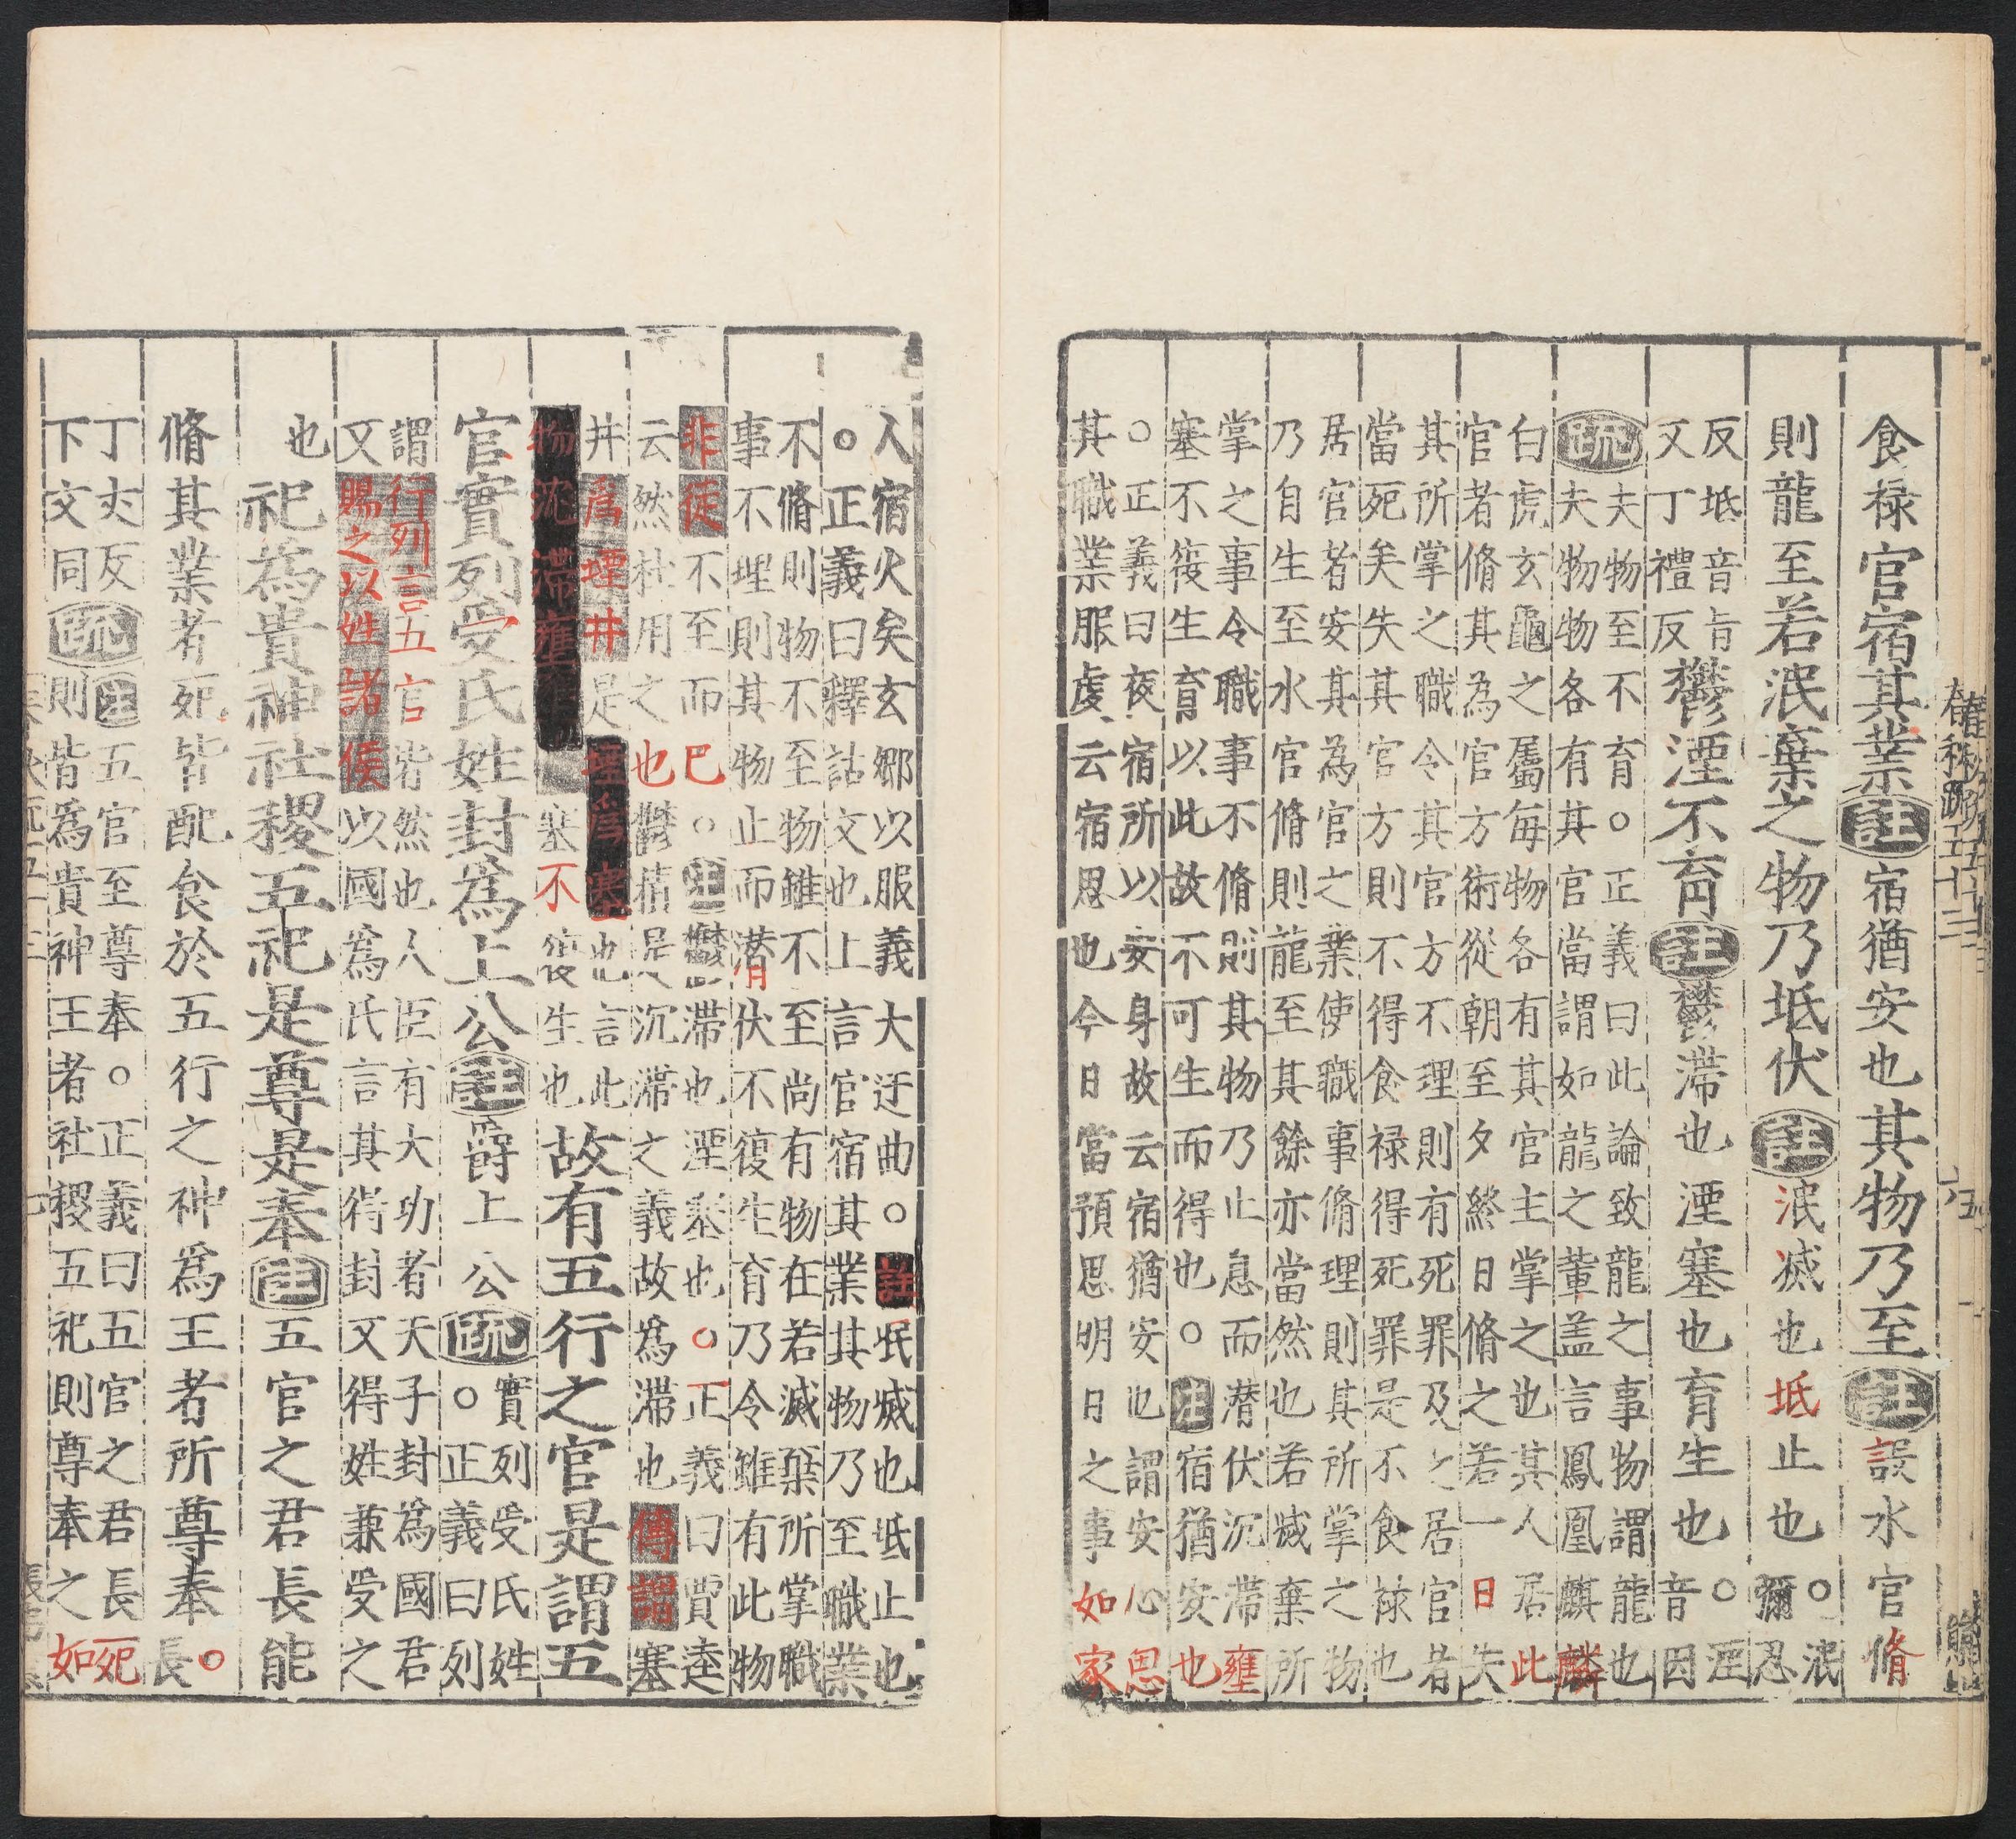 食禄官宿其業註宿猶安也其物乃至註設水官脩
則龍至若泯棄之物乃坻伏註泯滅也坻止也
。泯
彌忍
反坻音旨
又丁禮反
鬱湮不育註鬱滯也湮塞也育生也
。湮
音因
疏
夫物至不育。正義曰此論致龍之事物謂龍也
夫物物各有其官當謂如龍之輩盖言鳳凰麒麟
白虎玄龜之屬每物各有其官主掌之也其人居此
官者脩其為官方術從朝至夕終日脩之若一日失
其所掌之職令其官方不理則有死罪及之居官者
當死矣失其官方則不得食禄得死罪是不食禄也
居官者安其為官之業使職事脩理則其所掌之物
乃自生至水官脩則龍至其餘亦當然也若滅棄所
掌之事令職事不脩則其物乃止息而潜伏沉滯壅
塞不復生育以此故不可生而得也。註宿猶安也
。正義曰夜宿所以安身故云宿猶安也謂安心思
其職業服虔云宿思也今日當預思明日之事如家
人宿火矣玄鄉以服義大迂曲。註泯滅也坻止也
。正義曰釋詁文也上言官宿其業其物乃至職業
不脩則物不至物雖不至尚有物在若滅棄所掌職
事不理則其物止而潜伏不復生育乃令雖有此物
非徒不至而已。註鬱滯也湮塞也。正義曰賈逵
云然杜用之也鬱積是沉滯之義故為滯也傳謂塞
井為堙井是堙為塞也言此
物沈滯壅塞不復生也
故有五行之官是謂五
官實列受氏姓封為上公註爵上公疏
實列受氏姓
。正義曰列
謂行列言五官皆然也人臣有大功者天子封為國君
又賜之以姓諸侯以國為氏言其得封又得姓兼受之
也
祀為貴神社稷五祀是尊是奉註五官之君長能
脩其業者死皆配食於五行之神為王者所尊奉。長
丁丈反
下文同
疏
註五官至尊奉。正義曰五官之君長死
則皆為貴神王者社稷五祀則尊奉之如